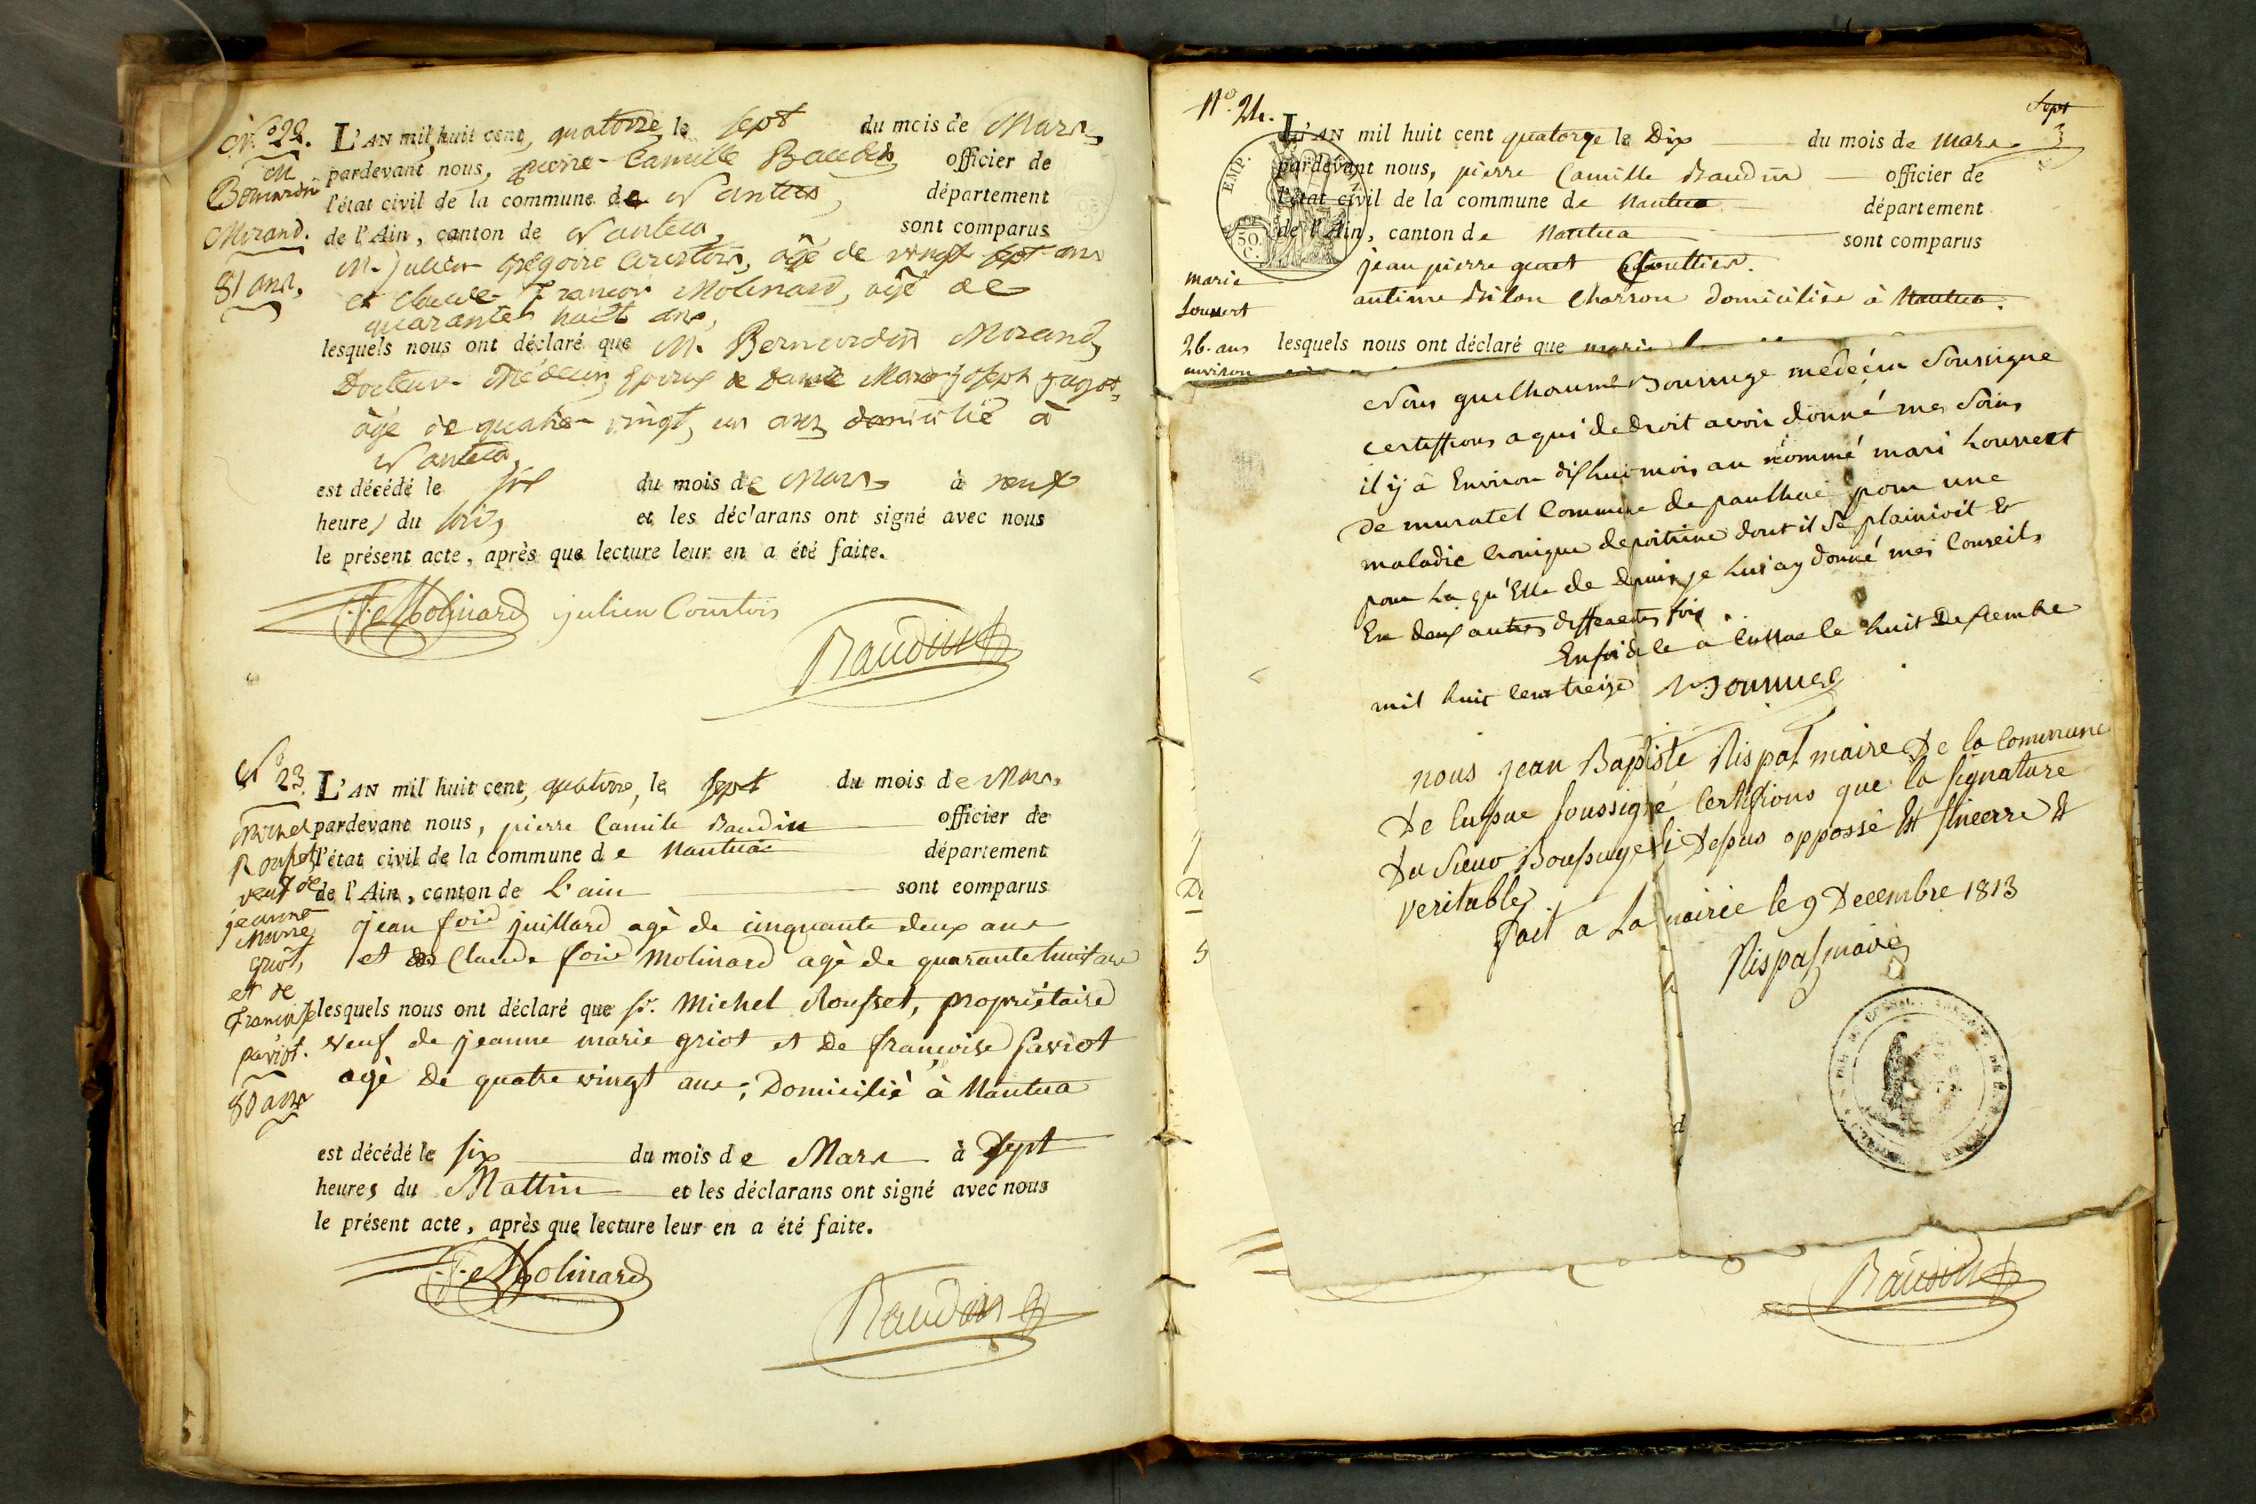 N.º 22.
M
Bernardin
Morand.
81 ans,
L'AN mil huit cent, quatorze, le sept du mois de Mars,
pardevant nous, pierre-Camille Baudin officier de
l'état civil de la commune de Nantua, département
de l'Ain, canton de Nantua, sont comparus
M. Julien Grégoire Courtois, âgé de vingt sept ans
et Claude François Molinard, âgé de
quarante huit ans,
lesquels nous ont déclaré que M. Bernardin Morand,
Docteur Médecin, époux de dame Marie Joseph
âgé de quatre vingt, un ans, domicilié à
Nantua,
est décédé le six du mois de Mars à neuf
heures du soir, et les déclarans ont signé avec nous
le présent acte, après que lecture leur en a été faite.
Molinard julien Courtois
Baudin
N.º 23.
Michel
Rousset
veuf de
jeanne
Marie
griot,
et de
Françoise
paviot.
80 ans
L'AN mil huit cent, quatorze, le sept du mois de Mars,
pardevant nous, pierre Camile Baudin officier de
l'état civil de la commune de Nantua département
de l'Ain, canton de L'ain sont comparus
jean juillard agè de cinquante deux ans
et Claude Molinard agè de quarante huit ans
lesquels nous ont déclaré que sr. Michel Rousset, propriétaire
veuf de jeanne marie griot et De françoise paviot
agè De quatre vingt ans; Domicilié à Nantua
est décédé le six du mois de Mars à sept
heures du Mattin et les déclarans ont signé avec nous
le présent acte, après que lecture leur en a été faite.
Molinard
Baudin
Nº. 24.
Sept
3
EMP.
50.
C.
L'AN mil huit cent quatorze le Dix du mois de mars
pardevant nous, pierre Camille Baudin officier de
l'état civil de la commune de Nantua département
de l'Ain, canton de Nantua sont comparus
jean pierre
antime Charron domiciliés à Nantua.
marie
Louvert
26. ans
environ
lesquels nous ont déclaré que marie
Nous guilhaume médeçin Soussigné
certiffions a qui de droit avoir donné mes Soins
il ÿ â Environ dixhuit mois au nommé mari Louvert
De muratel Commune de paulhac pour une
maladie cronique de poitrine dont il Se plainioit &
pour La qu'Elle de depuis je lui ay donné mes Conseils
En deux autres differentes fois.
En foi de ce a Cussac le huit Dexcembre
mil huit cens treize
nous jean Baptiste Rispal maire De la Commune
De Cussac soussigné Certifions que la signature
Du Sieur Boussuge Ci Dessus oppossé Est sincerre Et
veritable
fait a La mairie le 9 Decembre 1813
Rispal maire
Baudin